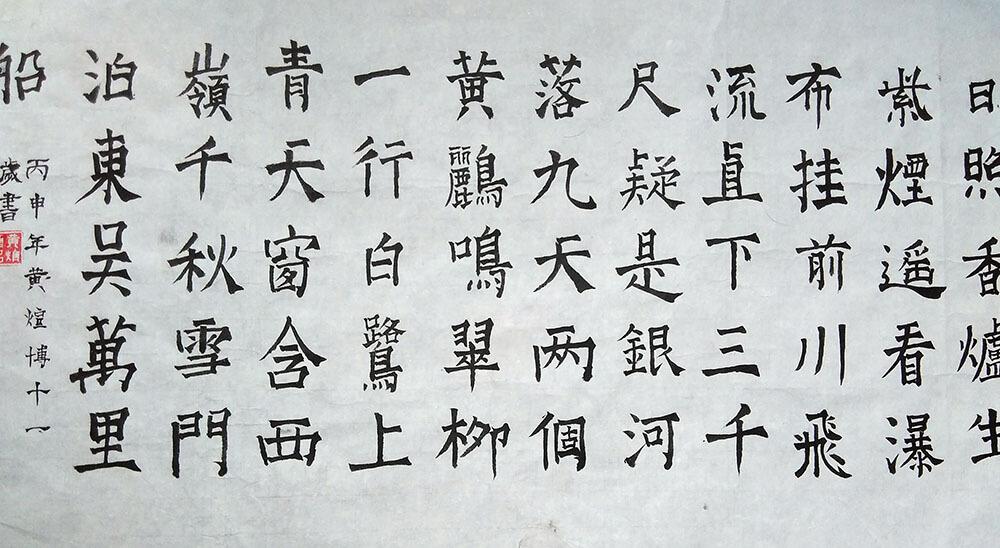 日照香爐生
紫煙遥看瀑
布挂前川飛
流直下三千
尺疑是銀河
落九天两個
黄鸝鳴翠柳
一行白鷺上
青天窗含西
嶺千秋雪門
泊東吴萬里
船
丙申年黄煊博十一
歲書